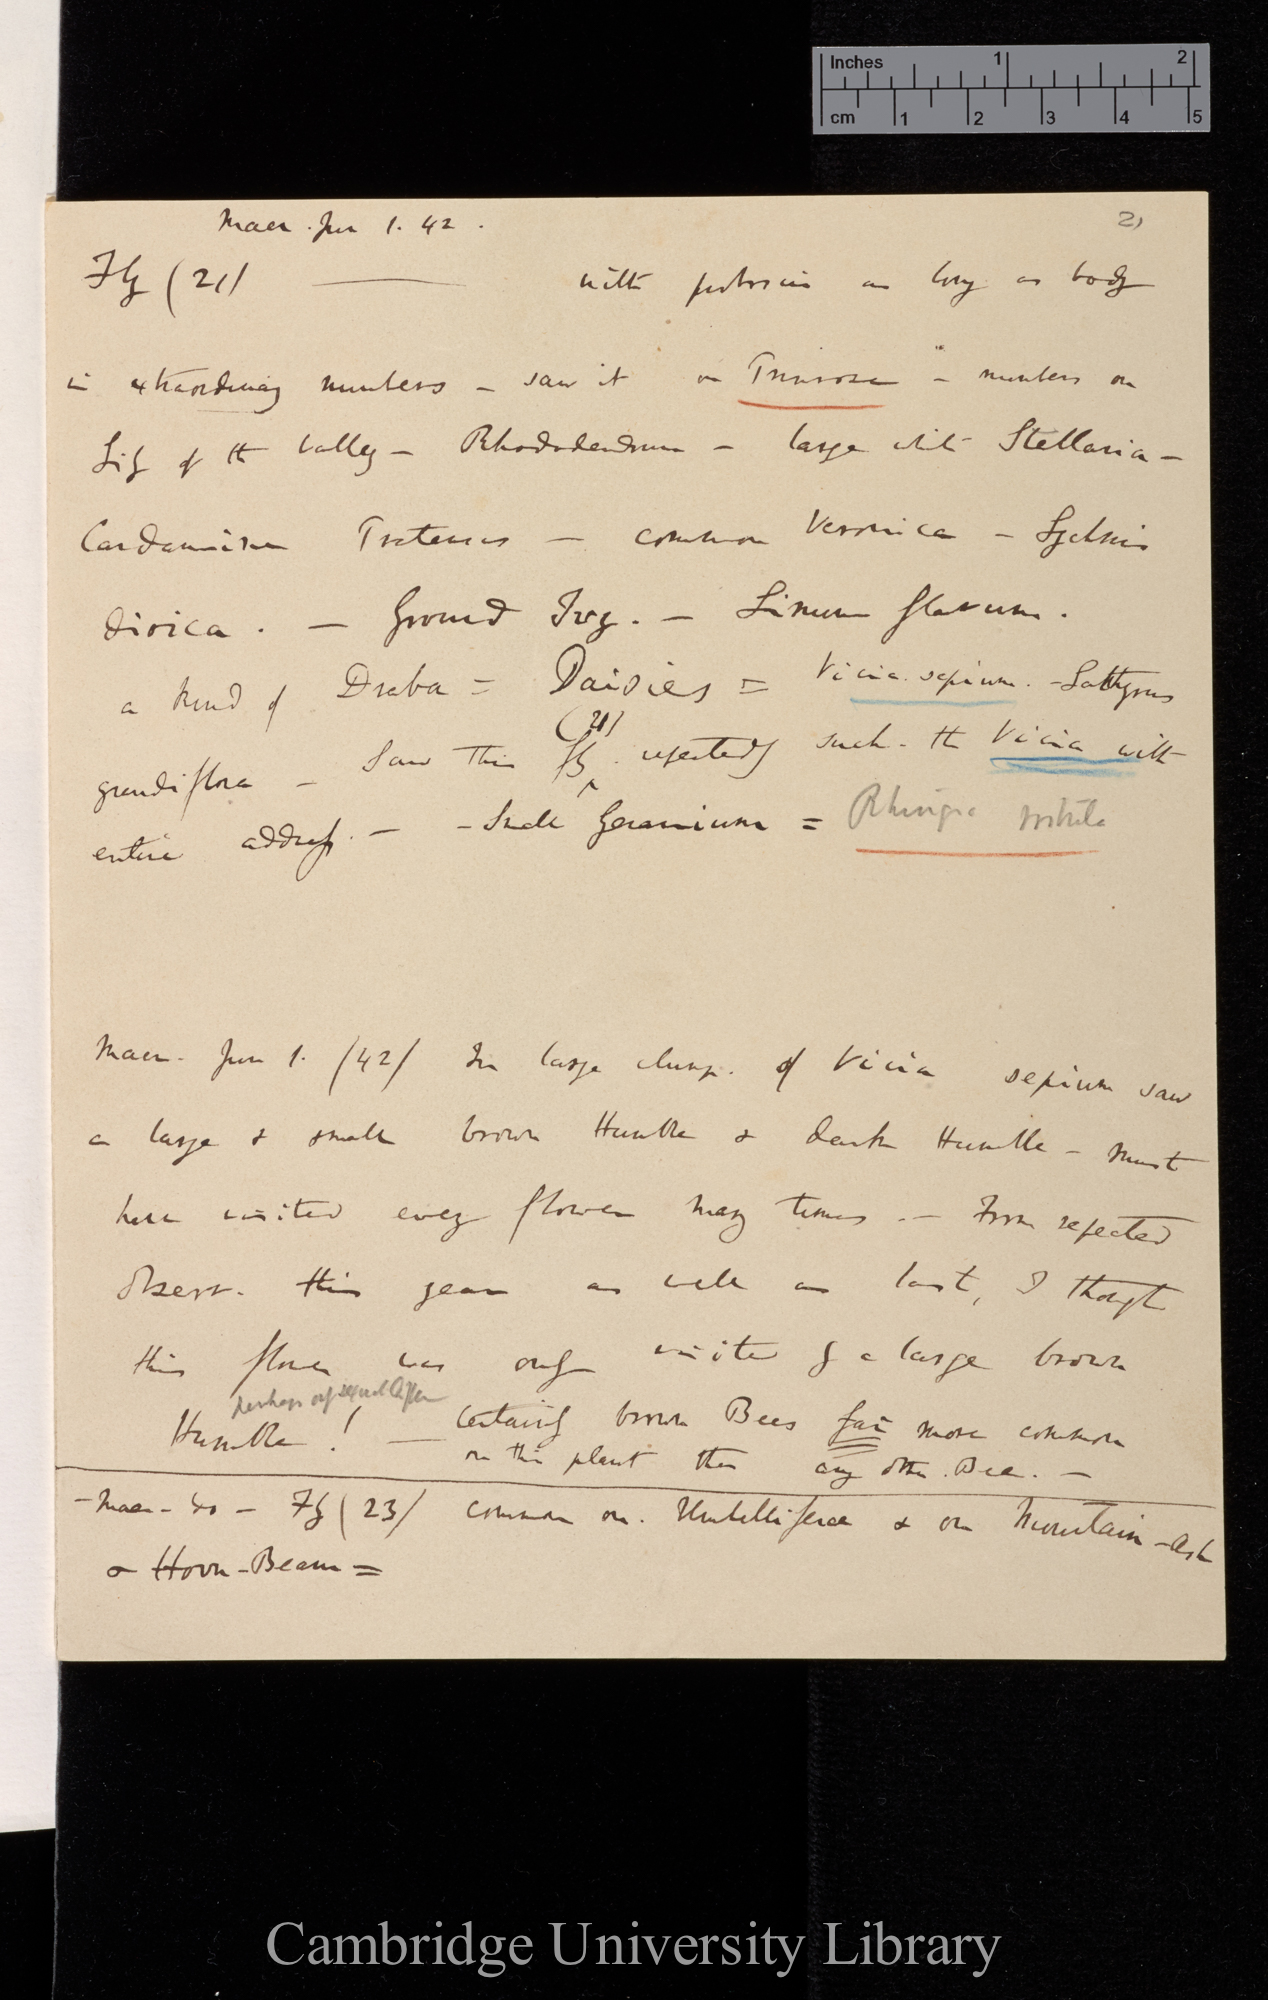 Inches 1 2
cm 1 2 3 4 5
Maer. Jun 1. 42.
21
Fly (21) — with proboscis as long as body
in extraordinary numbers – saw it on Primrose – numbers on
Lily of the Valley – Rhododendrum – large white Stellaria –
Cardamine Pratensis – common Veronica – Lychnis
dioica. – Ground Ivy. – Linum flavum.
a kind of Draba = Daisies = Vicia sepium. – Lathyrus
grandiflora – Saw this fly (21) repeatedly suck. the Vicia with
entire address. – – Suck Geranium = Rhingia
Maer. Jun 1. /42/ In large clump. of Vicia sepium saw
a large & small brown Humble & dark Humble – must
have visited every flower many times. – From repeated
observ. this year as well as last, I thought
this flower was only visited by a large brown
perhaps only
Humble! — Certainly brown Bees far more common
on this plant than any other. Bee. –
– Maer – do – Fly (23) common on. Umbelliferae & on Mountain-Ash
& Horn-Beam =
Cambridge University Library